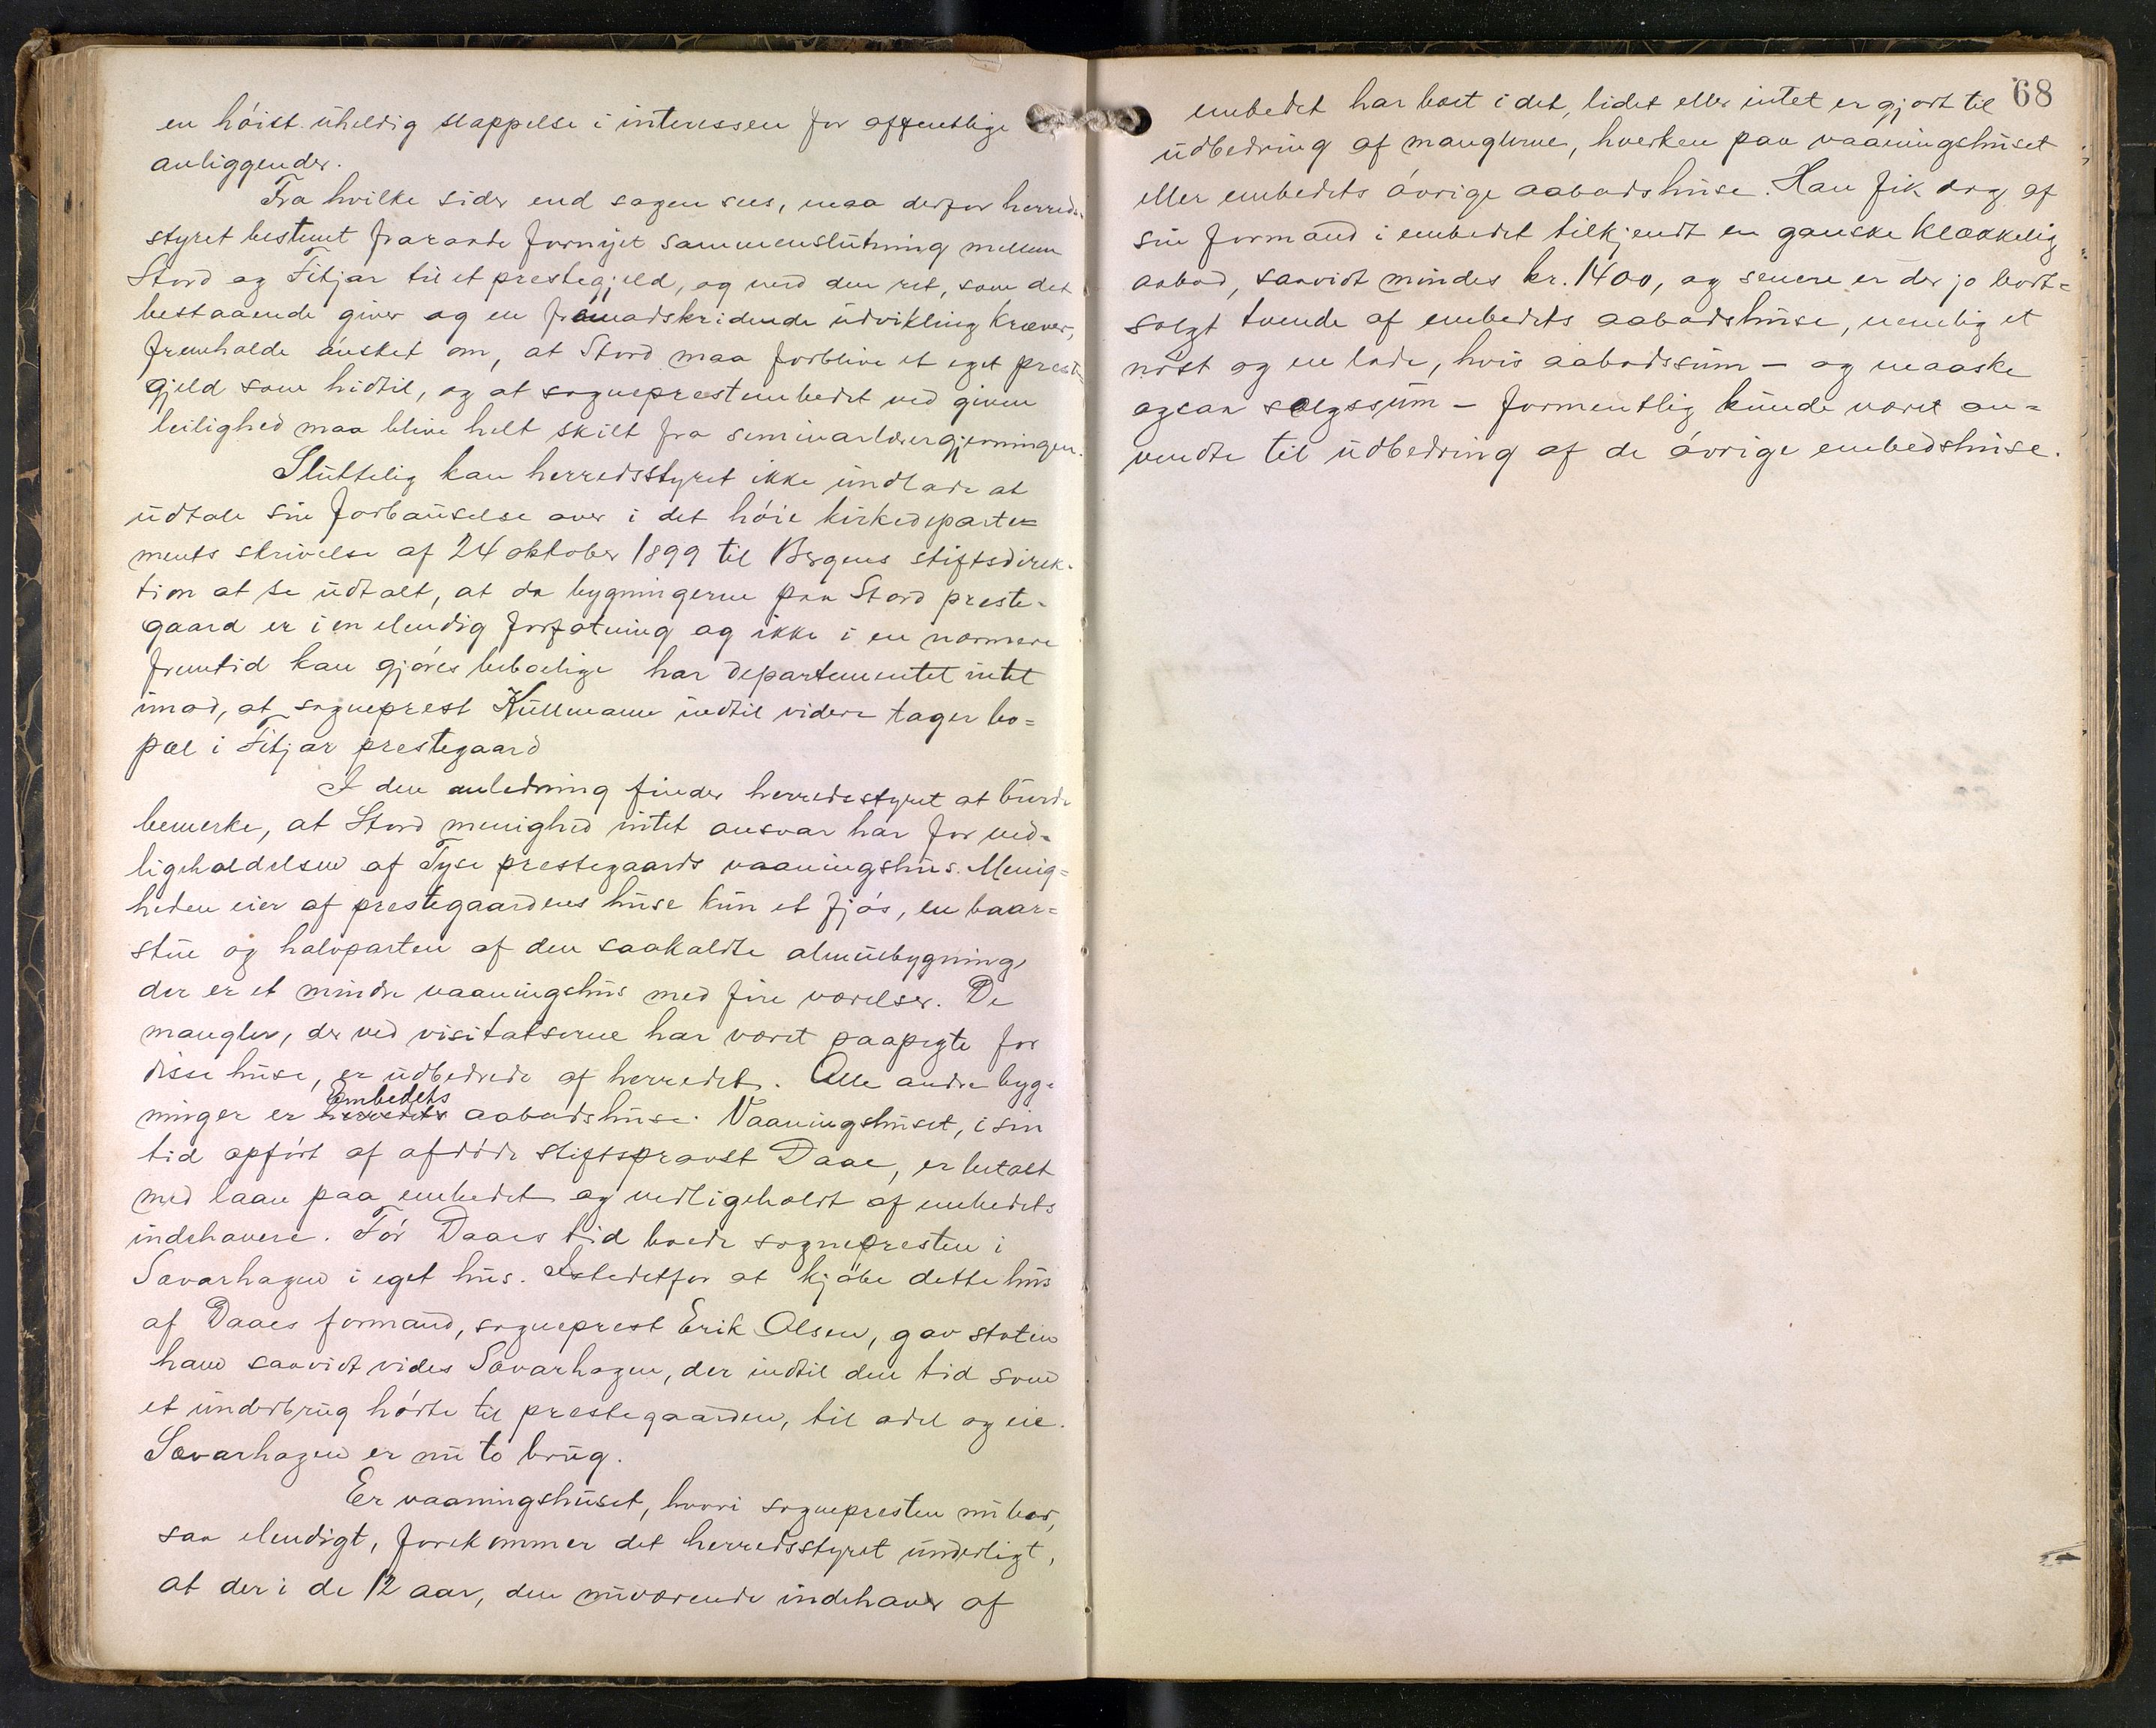 en höist uheldig slappelse i interessen for offentlige
anliggender.
Fra hvilke sider end sagen sees, maa derfor herreds-
styret bestemt fraraade fornyet sammenslutning mellem
Stord og Fitjar til et prestegjeld, og med den ret, som det
bestaaende giver og en fremadskridende udvikling kræver,
fremholde ønsket om, at Stord maa forblive et eget preste-
gjeld som hidtil, og at sogneprestembedet ved given
leilighed maa blive helt skilt fra seminarlærergjerningen.
Sluttelig kan herredsstyret ikke undlade at
udtale sin forbauselse over i det høie kirkedeparte=
ments skrivelse af 24 oktober 1899 til Bergens stiftsdirek-
tion at se udtalt, at da bygningerne paa Stord preste-
gaard er i en elendig forfatning og ikke i en nærmere
fremtid kan gjøres beboelige har departementet intet
imod, at sogneprest Küllmann indtil videre tager bo=
pæl i Fitjar prestegaard
I den anledning finder herredsstyret at burde
bemerke, at Stord menighed intet ansvar har for ved-
ligeholdelsen af Tyse prestegaards vaaningshus. Menig=
heden eier af prestegaardens huse kun et fjøs, en baar=
stue og halvparten af den saakaldte almuebygning
der er et mindre vaaningshus med fire værelser. De
mangler, der ved visitatserne har været paapegte for
disse huse, er udbedrede af herredet. Alle andre byg-
Embedets
ninger er herredets aabodshuse. Vaaningshuset, i sin
tid opført af afdøde stiftsprovst Daae, er betalt
med laan paa embedet og vedligeholdt af embedets
indehavere. Før Daaes tid boede sognepresten i
Sævarhagen i eget hus. Istedetfor at kjøbe dette hus
af Daaes formand, sogneprest Erik Olsen, gav staten
ham saavidt vides Sævarhagen, der indtil den tid som
et underbrug hørte til prestegaarden, til odel og eie.
Sævarhagen er nu to brug.
Er vaaningshuset, hvori sognepresten nu bor,
saa elendigt, forekommer det herredsstyret underligt,
at der i de 12 aar, den nuværende indehaver af
68
embedet har boet i det, lidet eller intet er gjort til
udbedring af manglerne, hverken paa vaaningshuset
eller embedets øvrige aabodshuse. Han fik dog af
sin formand i embedet tilkjendt en ganske klækkelig
aabod, saavidt mindes kr. 1400, og senere er der jo bort=
solgt tvende af embedets aabodshuse, nemlig et
nøst og en lade, hvis aabodssum – og maaske
ogsaa salgssum – formentlig kunde været an=
vendte til udbedring af de øvrige embedshuse.